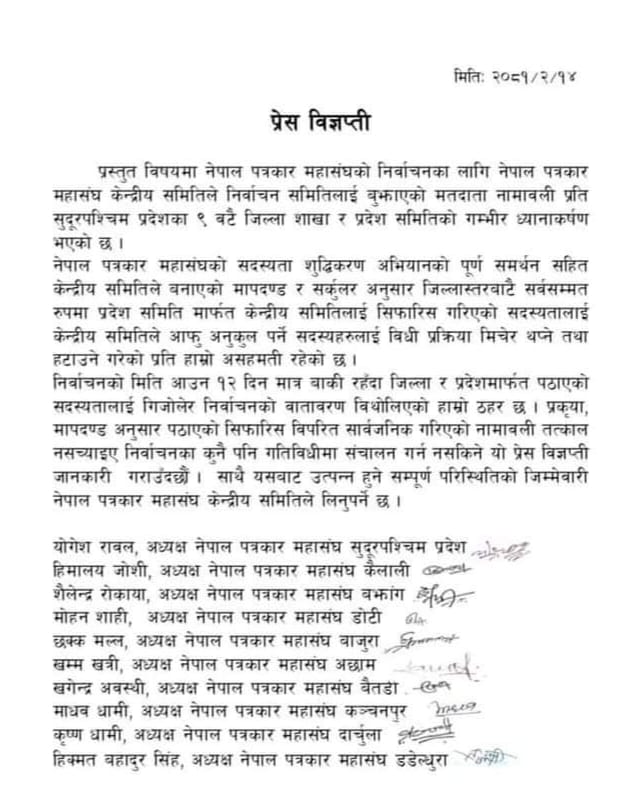 मितिः २०८१/२/१४
प्रेस विज्ञप्ती
प्रस्तुत विषयमा नेपाल पत्रकार महासंघको निर्वाचनका लागि नेपाल पत्रकार
महासंघ केन्द्रीय समितिले निर्वाचन समितिलाई बुझाएको मतदाता नामावली प्रति
सुदूरपश्चिम प्रदेशका ९ वटै जिल्ला शाखा र प्रदेश समितिको गम्भीर ध्यानाकर्षण
भएको छ ।
नेपाल पत्रकार महासंघको सदस्यता शुद्धिकरण अभियानको पूर्ण समर्थन सहित
केन्द्रीय समितिले बनाएको मापदण्ड र सर्कुलर अनुसार जिल्लास्तरबाटै सर्वसम्मत
रुपमा प्रदेश समिति मार्फत केन्द्रीय समितिलाई सिफारिस गरिएको सदस्यतालाई
केन्द्रीय समितिले आफु अनुकुल पर्ने सदस्यहरुलाई विधी प्रक्रिया मिचेर थप्ने तथा
हटाउने गरेको प्रति हाम्रो असहमती रहेको छ ।
निर्वाचनको मिति आउन १२ दिन मात्र बाकी रहँदा जिल्ला र प्रदेशमार्फत पठाएको
सदस्यतालाई गिजोलेर निर्वाचनको वातावरण विथोलिएको हाम्रो ठहर छ । प्रकृया,
मापदण्ड अनुसार पठाएको सिफारिस विपरित सार्वजनिक गरिएको नामावली तत्काल
नसच्याइए निर्वाचनका कुनै पनि गतिविधीमा संचालन गर्न नसकिने यो प्रेस विज्ञप्ती
जानकारी गराउँदछौँ । साथै यसबाट उत्पन्न हुने सम्पूर्ण परिस्थितिको जिम्मेवारी
नेपाल पत्रकार महासंघ केन्द्रीय समितिले लिनुपर्ने छ ।
योगेश रावल, अध्यक्ष नेपाल पत्रकार महासंघ सुदूरपश्चिम प्रदेश
हिमालय जोशी, अध्यक्ष नेपाल पत्रकार महासंघ कैलाली
शैलेन्द्र रोकाया, अध्यक्ष नेपाल पत्रकार महासंघ बझांग
मोहन शाही, अध्यक्ष नेपाल पत्रकार महासंघ डोटी
छक्क मल्ल, अध्यक्ष नेपाल पत्रकार महासंघ बाजुरा
खम्म खत्री, अध्यक्ष नेपाल पत्रकार महासंघ अछाम
खगेन्द्र अवस्थी, अध्यक्ष नेपाल पत्रकार महासंघ बैतडी
माधव धामी, अध्यक्ष नेपाल पत्रकार महासंघ कञ्चनपुर
कृष्ण धामी, अध्यक्ष नेपाल पत्रकार महासंघ दार्चुला
हिक्मत बहादुर सिंह, अध्यक्ष नेपाल पत्रकार महासंघ डडेल्धुरा